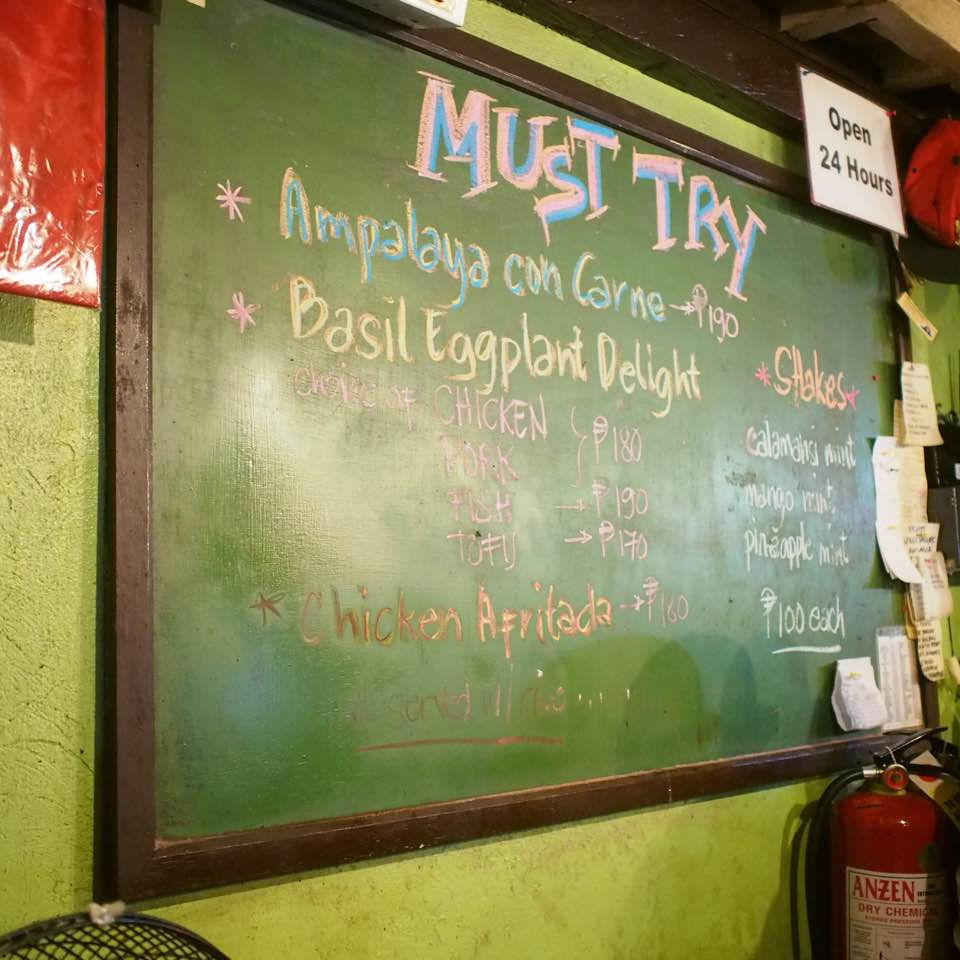 MUST TRY
* Ampalaya con Carne → ₱190
* Basil Eggplant Delight
choice of CHICKEN
PORK } ₱180
FISH → ₱190
TOFU → ₱170
* Chicken Afritada → ₱180
served w/ rice
* SHakes *
calamansi mint
mango mint
pineapple mint
₱100 each
Open
24 Hours
ANZEN
DRY CHEMICAL